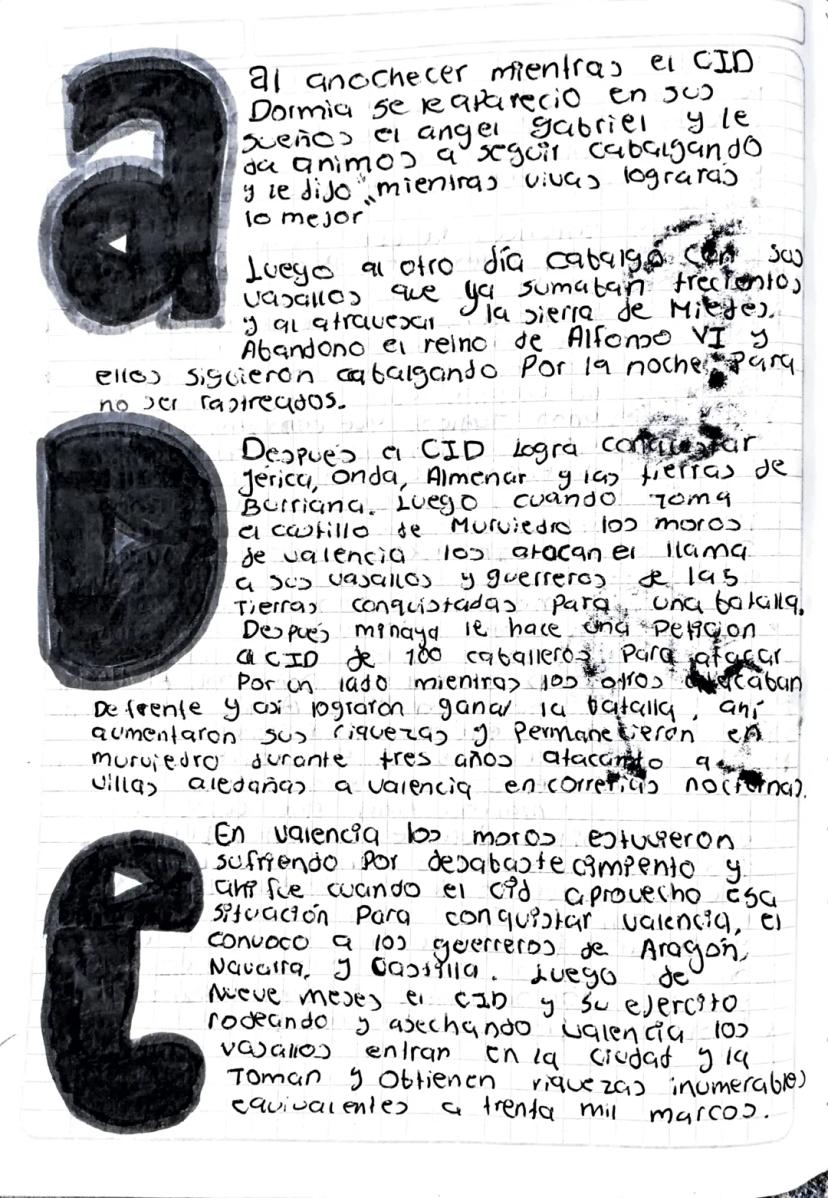 a
al anochecer mientras el CID
Dormia se le aparecio en sus
sueños el angel gabriel y le
da animos a seguir cabalgando
y le dijo "mientras vivas lograras
lo mejor"
Luego al otro día cabalgó con sus
vasallos que ya sumaban trecientos
y al atravesar la sierra de Miedes.
Abandono el reino de Alfonso VI y
ellos siguieron cabalgando Por la noche Para
no ser rastreados.
D
Despues el CID logra conquistar
Jerica, Onda, Almenar y las tierras de
Burriana. Luego cuando toma
el castillo de Murviedro los moros
de valencia los atacan el llama
a sus vasallos y guerreros de las
Tierras conquistadas Para una batalla.
Despues minaya le hace una Peticion
al CID de 100 caballeros Para atacar
Por un lado mientras los otros atacaban
De frente y asi lograron ganar la batalla, ahi
aumentaron sus riquezas y Permanecieron en
murviedro durante tres años atacando a
villas aledañas a valencia en correrias nocturnas.
E
En valencia los moros estuvieron
sufriendo Por desabastecimiento y
ahi fue cuando el cid aprovecho esa
situación Para conquistar valencia, el
convoco a los guerreros de Aragon,
Navarra, y Castilla. Luego de
Nueve meses el CID y su ejercito
rodeando y asechando valencia los
vasallos entran en la ciudad y la
Toman y Obtienen riquezas inumerables
equivalentes a trenta mil marcos.